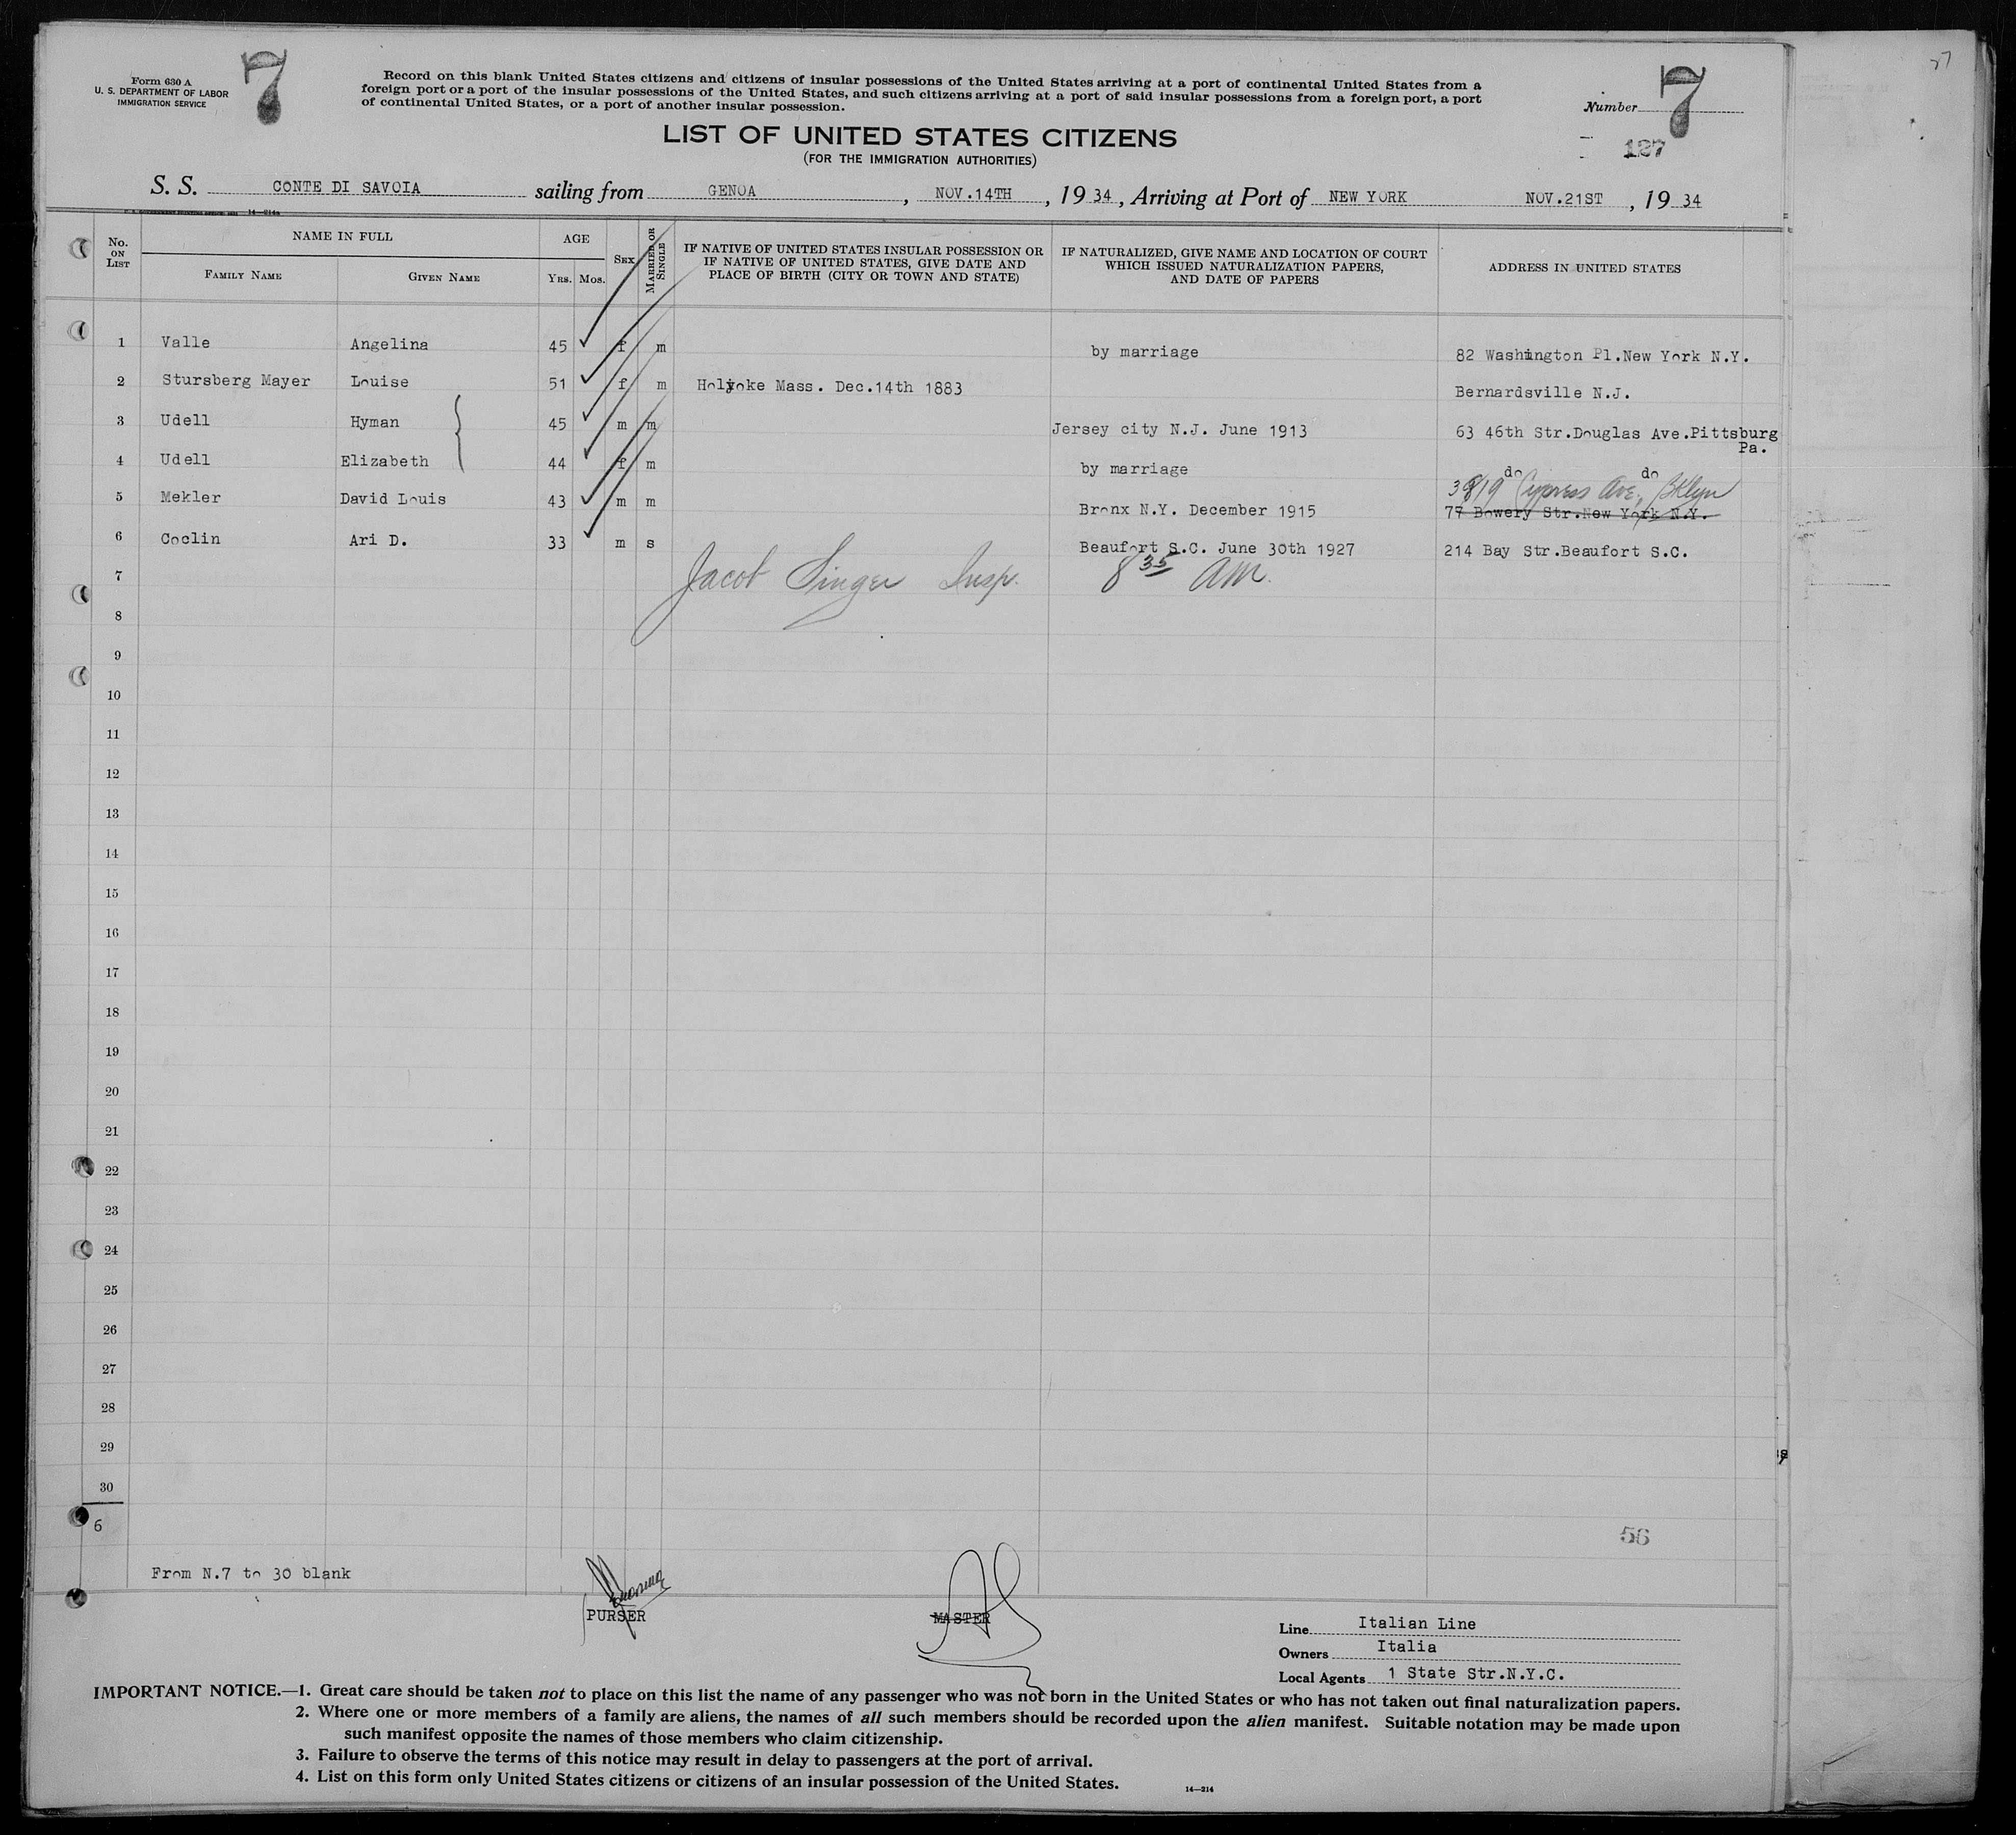 Form 630 A
U. S. DEPARTMENT OF LABOR
IMMIGRATION SERVICE
7
Record on this blank United States citizens and citizens of insular possessions of the United States arriving at a port of continental United States from a
foreign port or a port of the insular possessions of the United States, and such citizens arriving at a port of said insular possessions from a foreign port, a port
of continental United States, or a port of another insular possession.
Number 7
127
LIST OF UNITED STATES CITIZENS
(FOR THE IMMIGRATION AUTHORITIES)
S. S. CONTE DI SAVOIA sailing from GENOA, NOV.14TH, 19 34, Arriving at Port of NEW YORK NOV.21ST, 19 34
No. ON LIST
NAME IN FULL
FAMILY NAME GIVEN NAME
AGE
YRS. MOS.
SEX
MARRIED OR SINGLE
IF NATIVE OF UNITED STATES INSULAR POSSESSION OR
IF NATIVE OF UNITED STATES, GIVE DATE AND
PLACE OF BIRTH (CITY OR TOWN AND STATE)
IF NATURALIZED, GIVE NAME AND LOCATION OF COURT
WHICH ISSUED NATURALIZATION PAPERS,
AND DATE OF PAPERS
ADDRESS IN UNITED STATES
1 Valle Angelina 45 f m by marriage 82 Washington Pl.New York N.Y.
2 Stursberg Mayer Louise 51 f m Holyoke Mass. Dec.14th 1883 Bernardsville N.J.
3 Udell Hyman 45 m m Jersey city N.J. June 1913 63 46th Str.Douglas Ave.Pittsburg
Pa.
4 Udell Elizabeth 44 f m by marriage do do
3819 Cypress Ave., BKlyn
5 Mekler David Louis 43 m m Bronx N.Y. December 1915 77 Bowery Str.New York N.Y.
6 Coclin Ari D. 33 m s Beaufort S.C. June 30th 1927 214 Bay Str.Beaufort S.C.
7 Jacob Singer Insp. 8 35 AM.
8
9
10
11
12
13
14
15
16
17
18
19
20
21
22
23
24
25
26
27
28
29
30
6
56
From N.7 to 30 blank
PURSER
MASTER
Line Italian Line
Owners Italia
Local Agents 1 State Str.N.Y.C.
IMPORTANT NOTICE.—1. Great care should be taken not to place on this list the name of any passenger who was not born in the United States or who has not taken out final naturalization papers.
2. Where one or more members of a family are aliens, the names of all such members should be recorded upon the alien manifest. Suitable notation may be made upon
such manifest opposite the names of those members who claim citizenship.
3. Failure to observe the terms of this notice may result in delay to passengers at the port of arrival.
4. List on this form only United States citizens or citizens of an insular possession of the United States.
14—214